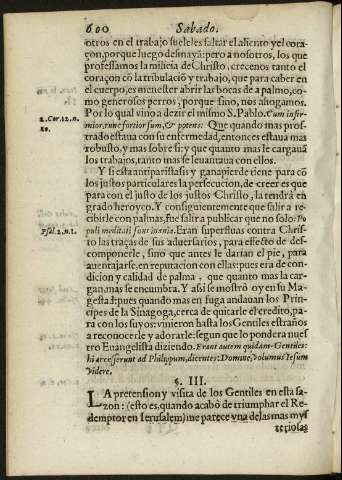 600 Sabado.
otros en el trabajo sueleles faltar el aliento y el cora-
çon, porque luego desmaya: pero a nosotros, los que
professamos la milicia de Christo, crecenos tanto el
coraçon cõ la tribulaciõ y trabajo, que para caber en
el cuerpo, es menester abrir las bocas de a palmo, co-
mo generosos perros, porque sino, nos ahogamos.
Por lo qual vino a dezir el mismo S. Pablo. Cum infir-
2. Cor. 12. n.
10.
mior, tunc fortior sum, & potens: Que quando mas pros-
trado estaua con su enfermedad, entonces estaua mas
robusto, y mas sobre si: y que quanto mas le cargauã
los trabajos, tanto mas se leuantaua con ellos.
Y si esta antiparistasis y ganapierde tiene para cõ
los justos particulares la persecucion, de creer es que
para con el justo de los justos Christo, la tendrá en
grado heroyco. Y consiguientemente que salir a re-
cibirle con palmas, fue salir a publicar que no solo: Po
Psal. 2. n. 1.
puli meditati sunt inania. Eran superfluas contra Chris-
to las traças de sus aduersarios, para effecto de des-
componerle, sino que antes le darian el pie, para
auentajarse en reputacion con ellas: pues era de con-
dicion y calidad de palma, que quanto mas la car-
gan, mas se encumbra. Y assi se mostrò oy en su Ma-
gestad: pues quando mas en fuga andauan los Prin-
cipes de la Sinagoga, cerca de quitarle el credito, pa-
ra con los suyos: vinieron hasta los Gentiles estraños
a reconocerle y adorarle: segun que lo pondera nues-
tro Euangelista diziendo. Erant autem quidam Gentiles:
hi accesserunt ad Philippum, dicentes: Domine, volumus Iesum
videre.
§. III.
LA pretension y visita de los Gentiles en esta sa-
zon: (esto es, quando acabò de triumphar el Re-
demptor en Ierusalem) me parece vna de las mas mys
teriosas